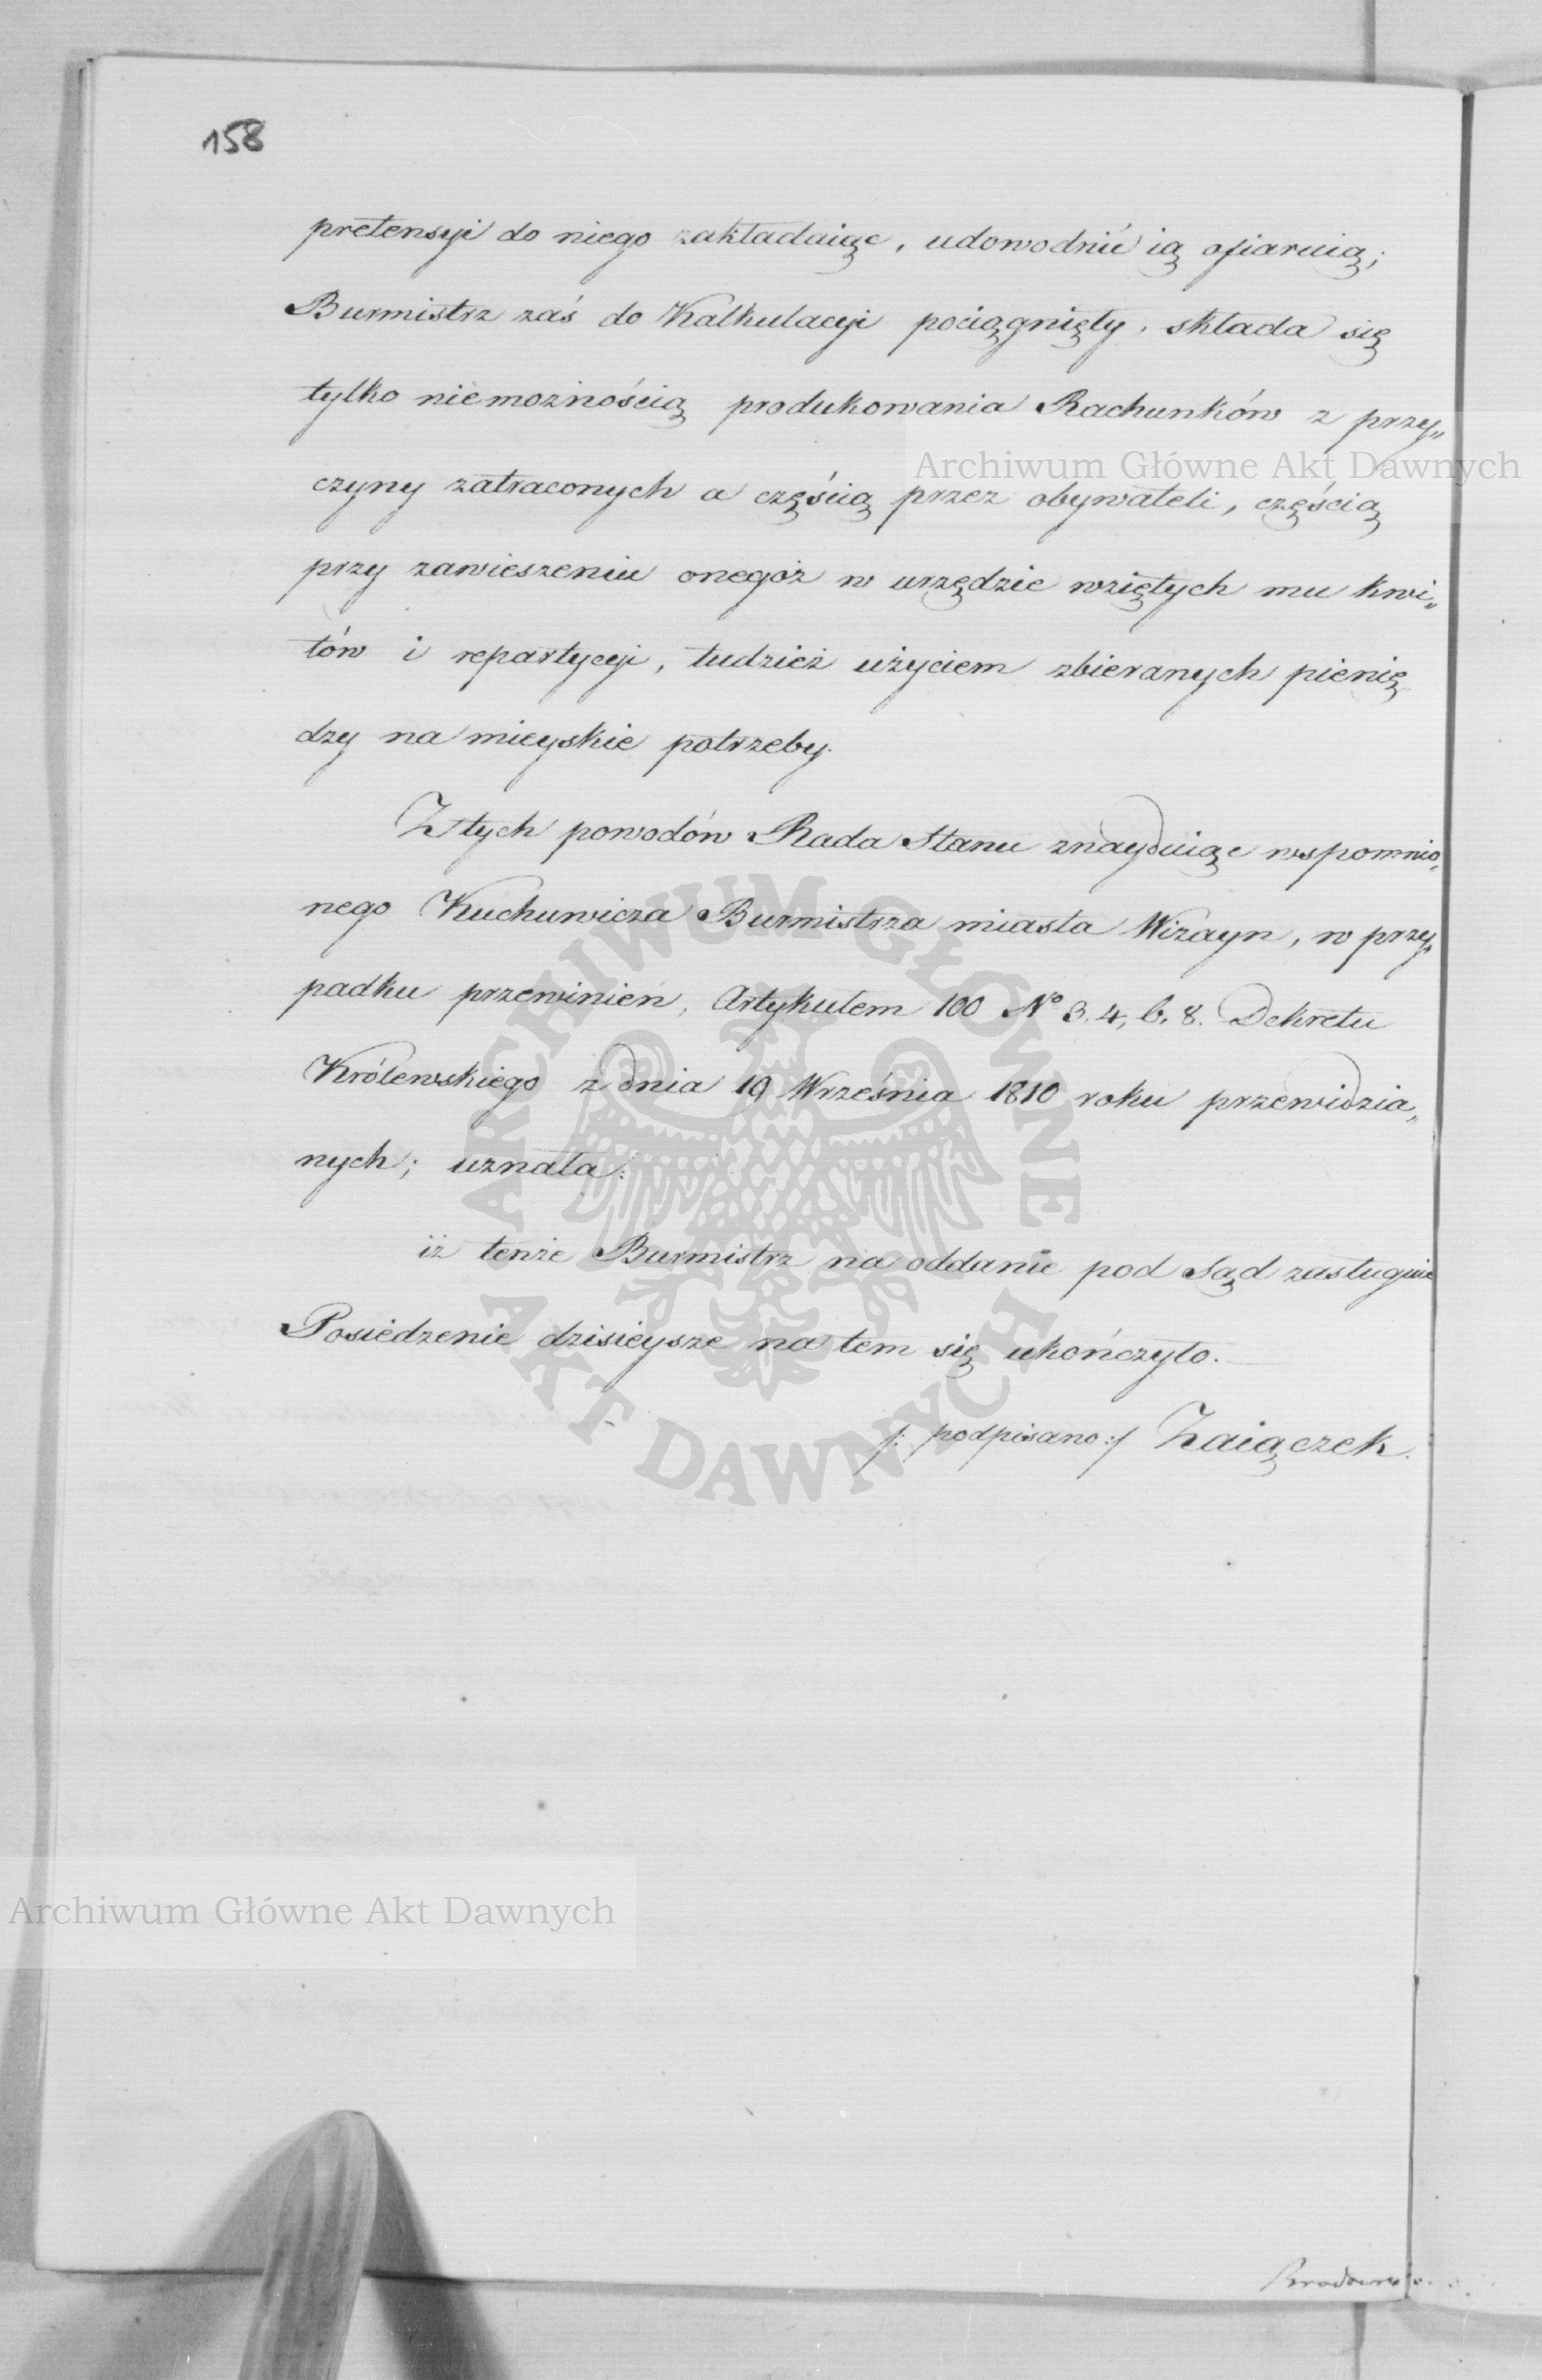 158
pretensyi do niego zakładaiąc, udowodnić ią ofiaruią;
Burmistrz zaś do Kalkulacyi pociągnięty, składa się
tylko niemożnością produkowania Rachunków z przy„
Archiwum Główne Akt Dawnych
czyny zatraconych a częścią przez obywateli, częścią
przy zawieszeniu onegoż w urzędzie wziętych mu kwi„
tów i repartycyi, tudzież użyciem zbieranych pienię
dzy na mieyskie potrzeby.
Z tych powodów Rada Stanu znayduiąc wspomnio„
nego Kuchuwicza Burmistrza miasta Wizayn, w przy„
padku przewinień, Artykułem 100 No 3. 4, 6. 8. Dekretu
Królewskiego z dnia 19 Września 1810 roku przewidzia„
nych; uznała:
iż tenże Burmistrz na oddanie pod Sąd zasługuie
Posiedzenie dzisieysze na tem się ukończyło.
/: podpisano :/ Zaiączek.
ARCHIWUM GŁÓWNE AKT DAWNYCH
Archiwum Główne Akt Dawnych